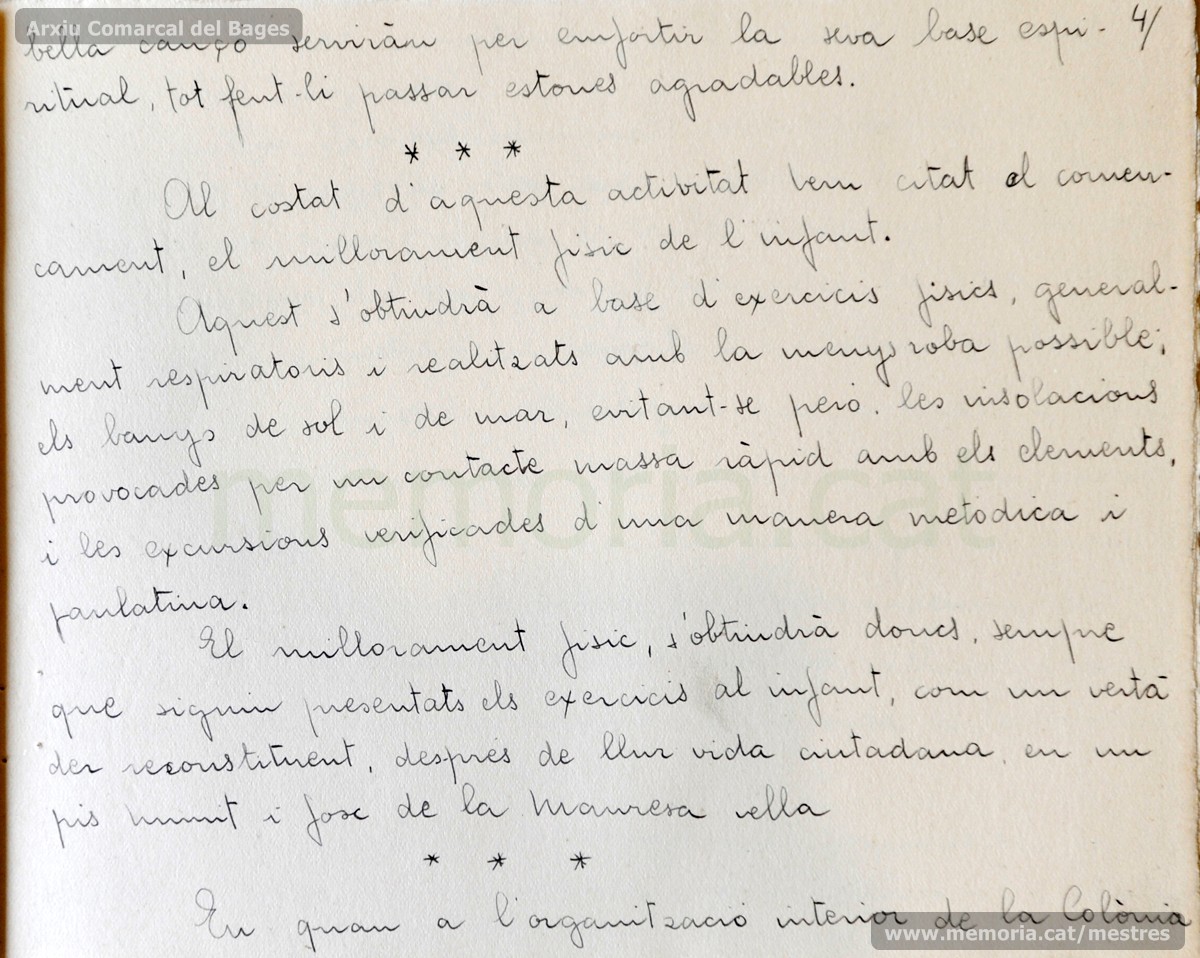 Arxiu Comarcal del Bages
bella cançó serviràn per enfortir la seva base espi- 4/
ritual, tot fent-li passar estones agradables.
* * *
Al costat d'aquesta activitat hem citat al comen-
cament, el millorament fisic de l'infant.
Aquest s'obtindrà a base d'exercicis fisics, general-
ment respiratoris i realitzats amb la menys roba possible;
els banys de sol i de mar, evitant-se però, les insolacions
provocades per un contacte massa ràpid amb els elements,
i les excursions verificades d'una manera metodica i
paulatina.
El millorament fisic, s'obtindrà doncs, sempre
que siguin presentats els exercicis al infant, com un vertà
der reconstituent, després de llur vida ciutadana, en un
pis humit i fosc de la Manresa vella
* * *
En quan a l'organització interior de la Colònia
memoria.cat
www.memoria.cat/mestres